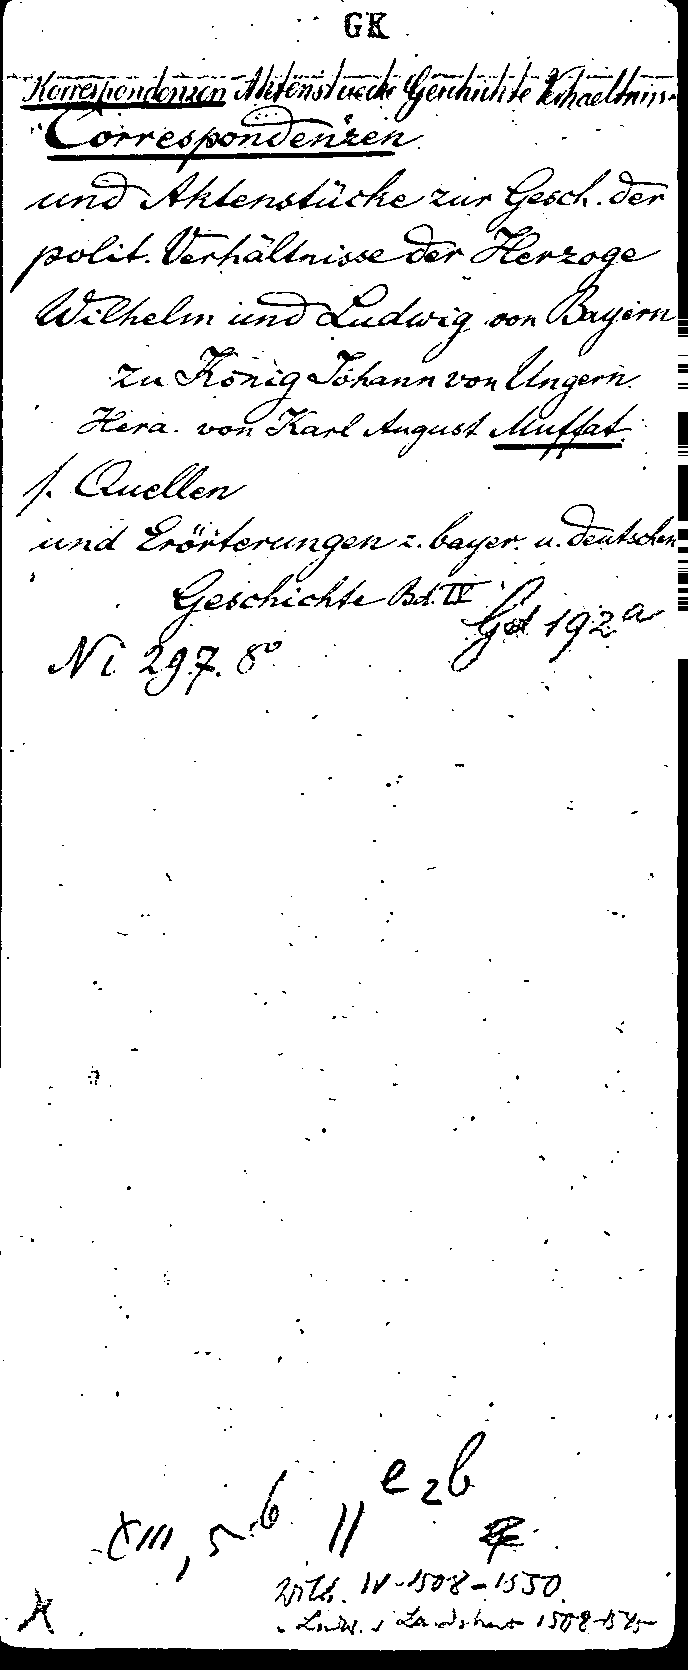 GK
Korrespondenzen Aktenstuecke Geschichte Verhaeltniss
Correspondenzen
und Aktenstücke zur Gesch. der
polit. Verhältnisse der Herzoge
Wilhelm und Ludwig von Bayern
zu König Johann von Ungern.
Hera. von Karl August Muffat.
s. Quellen
und Erörterungen z. bayer. u. deutschen
Geschichte Bd. IV
Gd 192a
Ni 297. 8°
XIII, 5 b // e 2 b
Wilh. IV - 1508-1550.
Ludw. v Landshut 1508-1545